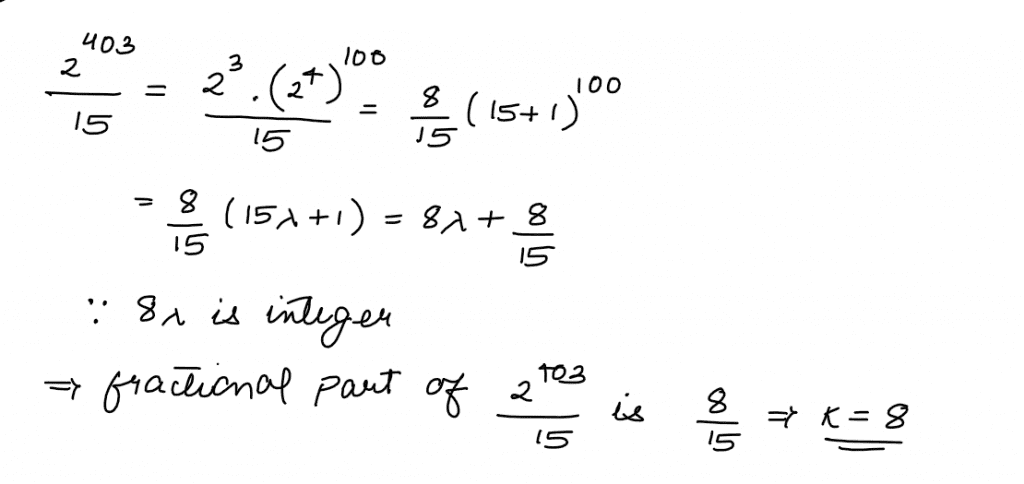 2^403/15 = 2^3.(2^4)^100/15 = 8/15 (15+1)^100
= 8/15 (15λ+1) = 8λ + 8/15
∵ 8λ is integer
⇒ fractional part of 2^403/15 is 8/15 ⇒ K = 8